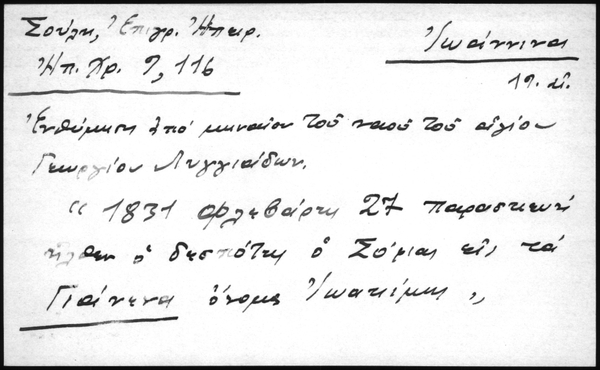 Σούλη, Ἐπιγρ. Ἠπειρ.
Ἰωάννινα
Ἠπ. Χρ. 9, 116
19. αἰ.
Ἐνθύμηση ἀπό μηναῖον τοῦ ναοῦ τοῦ ἁγίου
Γεωργίου Λυγγιάδων.
"1831 Φλεβάρη 27 παρασκευή
ἦλθεν ὁ δεσπότης ὁ Σόφιας εἰς τά
Γιάνενα ὄνομα Ἰωακίμης"